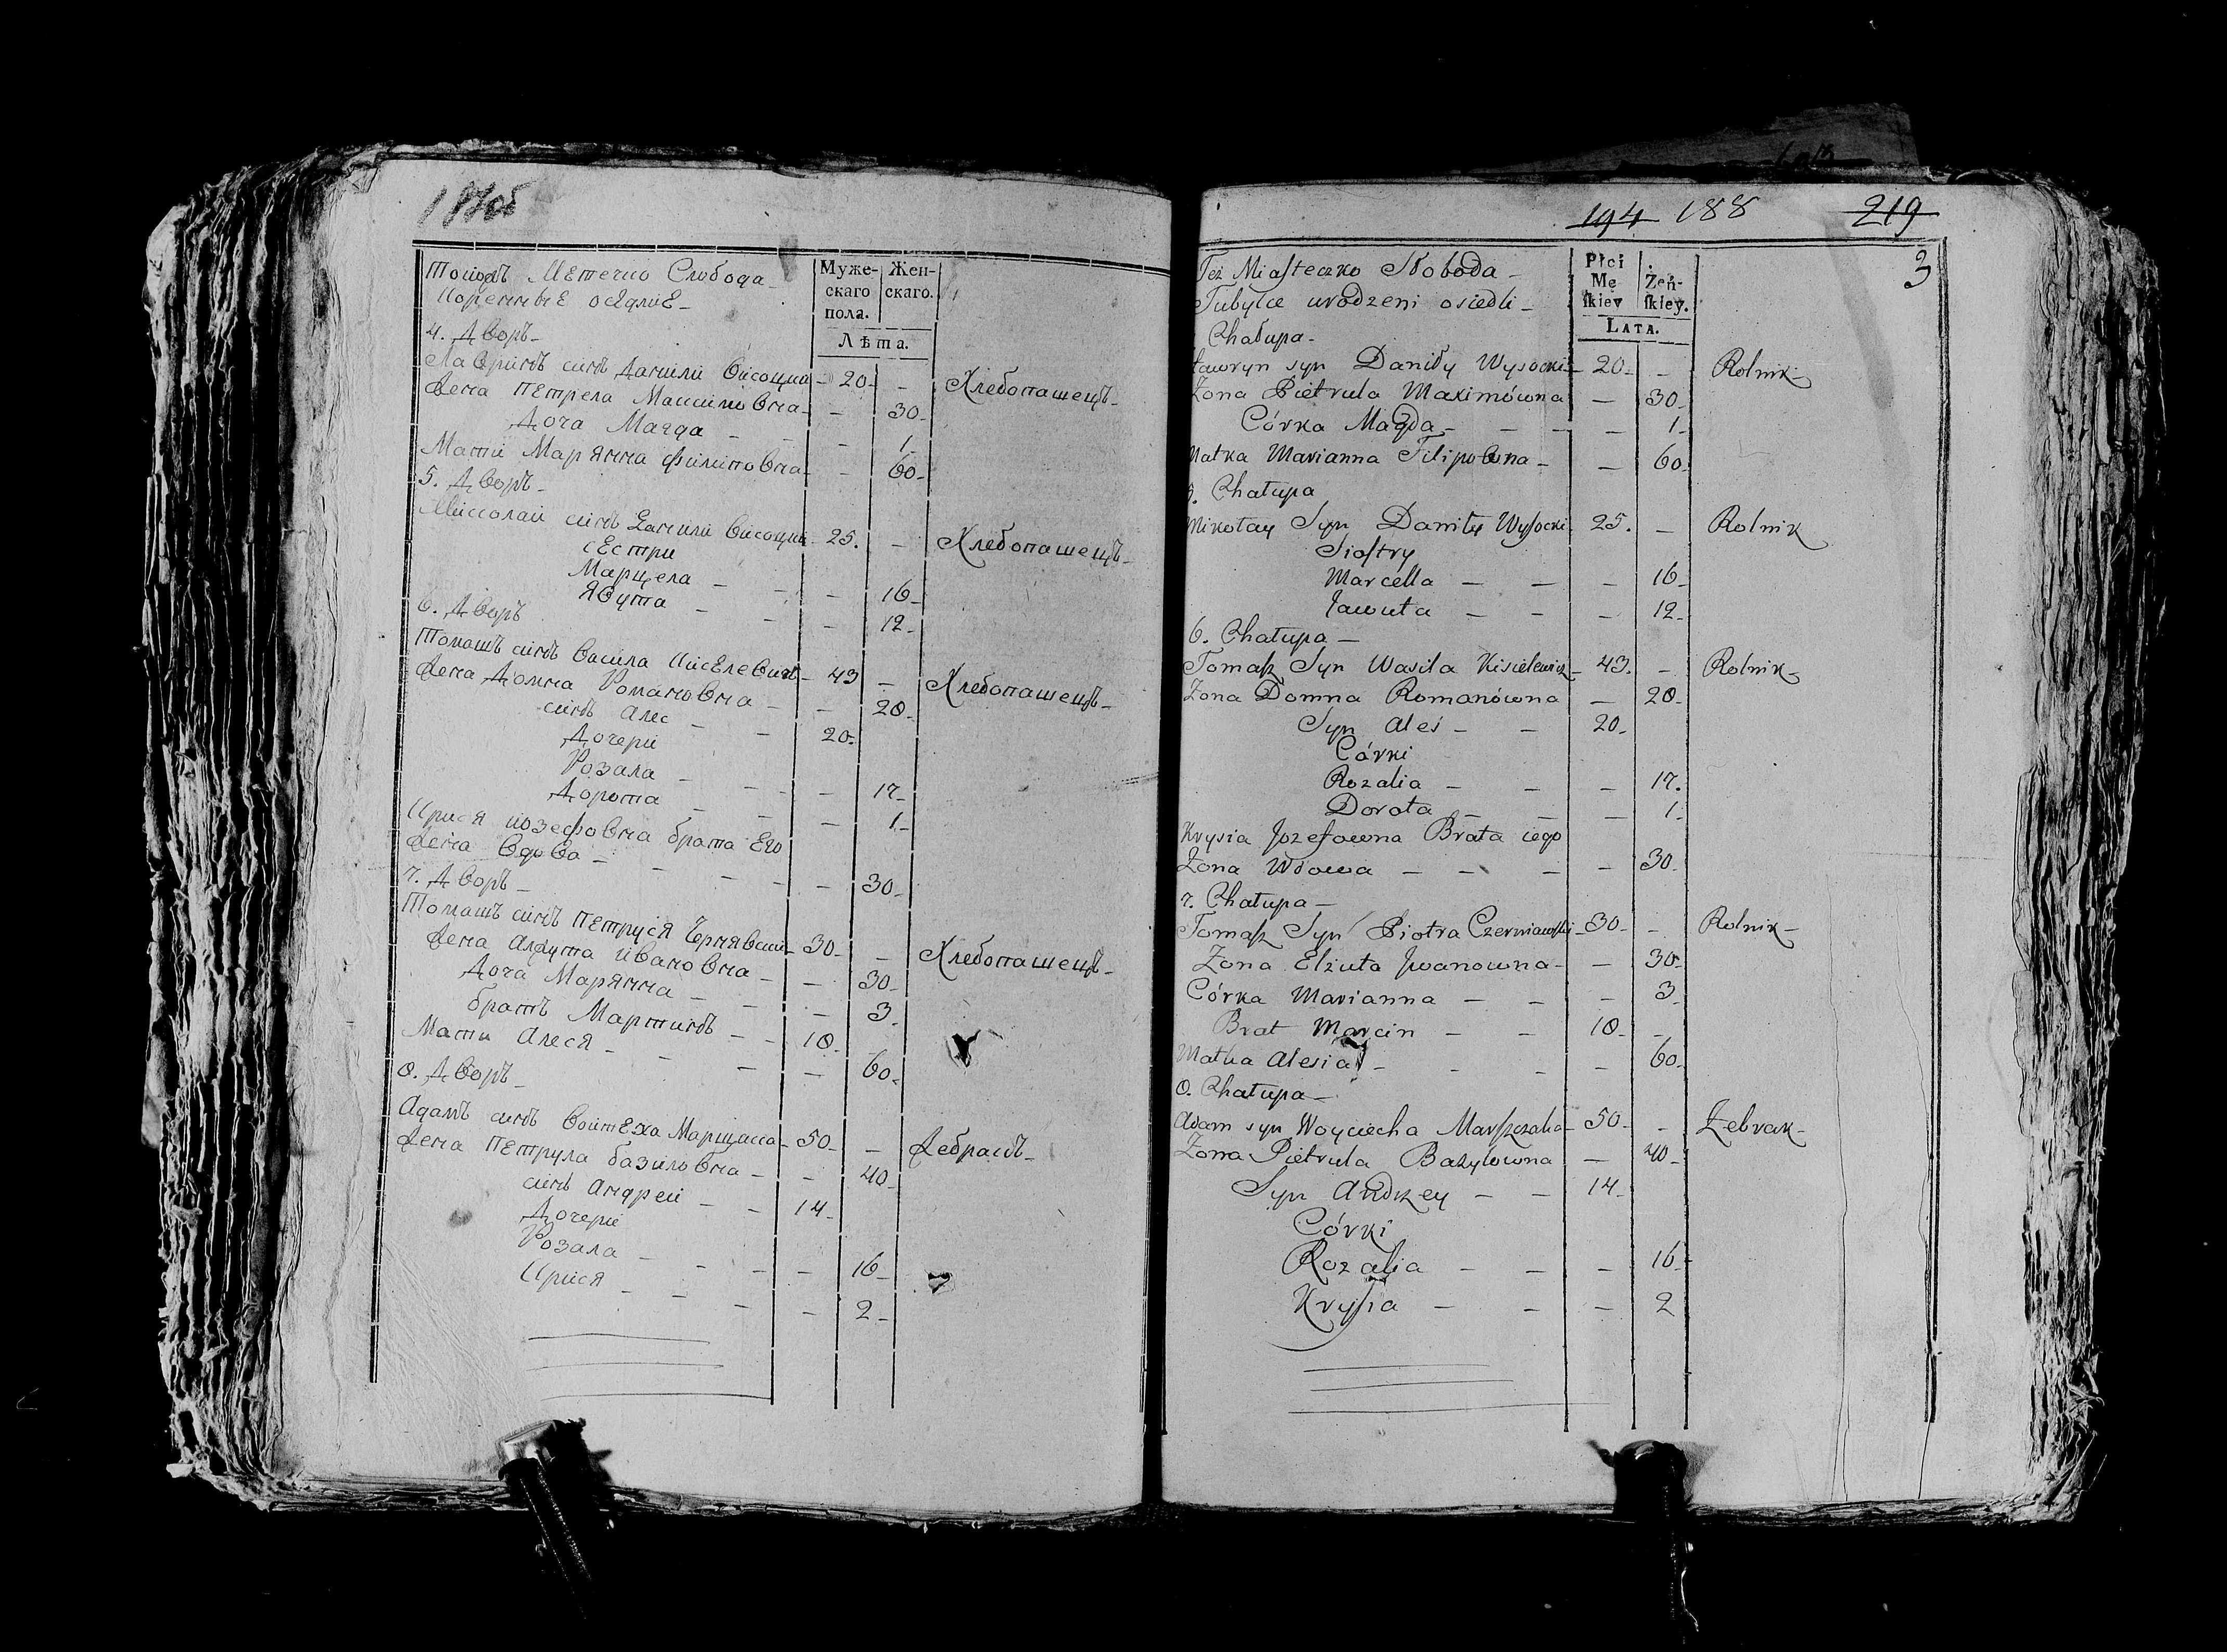 Тоиже Мѣстечко Слобода
Кореnные оседлие
Муже-
скаго
пола.
Жен-
скаго.
Лѣта.
4. Дворъ
Лавринъ синъ Данили Висоцки 20 - Хлебопашецъ
Жена Петрела Максимовна - 30
Доча Магда - 1
Мати Марянна Филиповна - 60
5. Дворъ
Миколай синъ Данили Висоцки 25. - Хлебопашецъ
сестри
Марцела - 16
Явута - 12
6. Дворъ
Томашъ синъ Васила Киселевичъ 43 - Хлебопашецъ
Жена Домна Романовна - 28
синъ Алес 20
Дочери
Розала - 17
Дорота - 1
Крися Иозефовна брата Его
Жена Вдова - 30
7. Дворъ
Томашъ синъ Петруся Чернявски 30 - Хлебопашецъ
Жена Алжута Ивановна - 30
Доча Марянна - 3
братъ Мартинъ 18
Мати Алеся - 60
8. Дворъ
Адамъ синъ Войтеха Марщалка 50 - Жебракъ
Жена Петрула базиловна - 40
синъ Андрей 14
Дочери
Розала - 16
Крися - 2
194 188 219
3
Też Miasteczko Słoboda
Tubylce urodzeni osiedli
Płci
Mę
skiey
Żeń-
skiey.
Lata.
Chałupa
Ławryn syn Daniły Wysocki 20 - Rolnik
Zona Pietrula Maximówna - 30
Córka Magda - 1
Matka Marianna Filipowna - 60
5. Chałupa
Mikołay Syn Daniły Wysocki 25. - Rolnik
Siostry
Marcella - 16
Jawuta - 12
6. Chałupa
Tomasz Syn Wasila Kisielewicz 43. - Rolnik
Zona Domna Romanówna - 28
Syn Aleś 20
Córki
Rozalia - 17.
Dorota - 1
Krysia Jozefowna Brata iego
Zona Wdowa - 30
7. Chałupa
Tomasz Syn Piotra Czerniawski 30 - Rolnik
Zona Elżuta Iwanowna - 30
Córka Marianna - 3
Brat Marcin 18 -
Matka Alesia - 60
8. Chałupa
Adam syn Woyciecha Marszczałka 50 - Żebrak
Zona Pietrula Bazylowna - 40
Syn Andrzey 14
Córki
Rozalia - 16
Krysia - 2